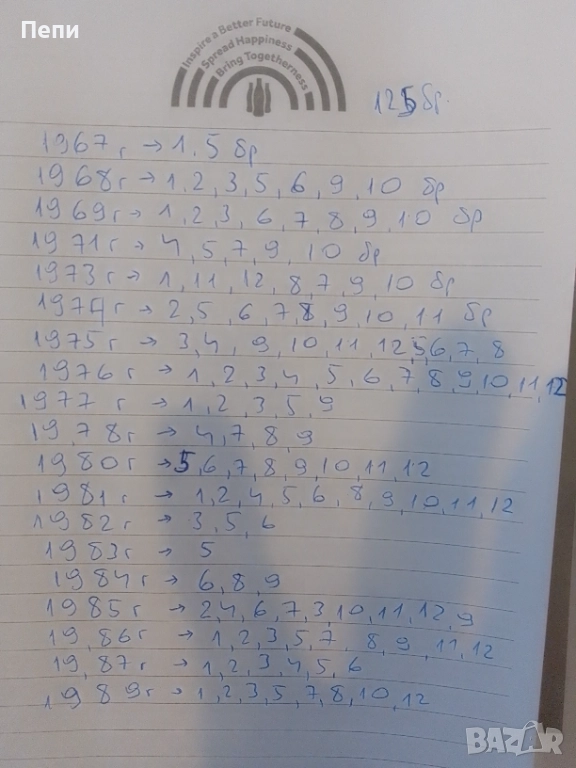 Пепи
Inspire a Better Future
Spread Happiness
Bring Togetherness
125 бр.
1967 г → 1, 5 бр
1968 г → 1, 2, 3, 5, 6, 9, 10 бр
1969 г → 1, 2, 3, 6, 7, 8, 9, 10 бр
1971 г → 4, 5, 7, 9, 10 бр
1973 г → 1, 11, 12, 8, 7, 9, 10 бр
1974 г → 2, 5, 6, 7, 8, 9, 10, 11 бр
1975 г → 3, 4, 9, 10, 11, 12, 5, 6, 7, 8
1976 г → 1, 2, 3, 4, 5, 6, 7, 8, 9, 10, 11, 12
1977 г → 1, 2, 3, 5, 9
1978 г → 4, 7, 8, 9
1980 г → 5, 6, 7, 8, 9, 10, 11, 12
1981 г → 1, 2, 4, 5, 6, 8, 9, 10, 11, 12
1982 г → 3, 5, 6
1983 г → 5
1984 г → 6, 8, 9
1985 г → 2, 4, 6, 7, 3, 10, 11, 12, 9
1986 г → 1, 2, 3, 5, 7, 8, 9, 11, 12
1987 г → 1, 2, 3, 4, 5, 6
1989 г → 1, 2, 3, 5, 7, 8, 10, 12
BAZAR